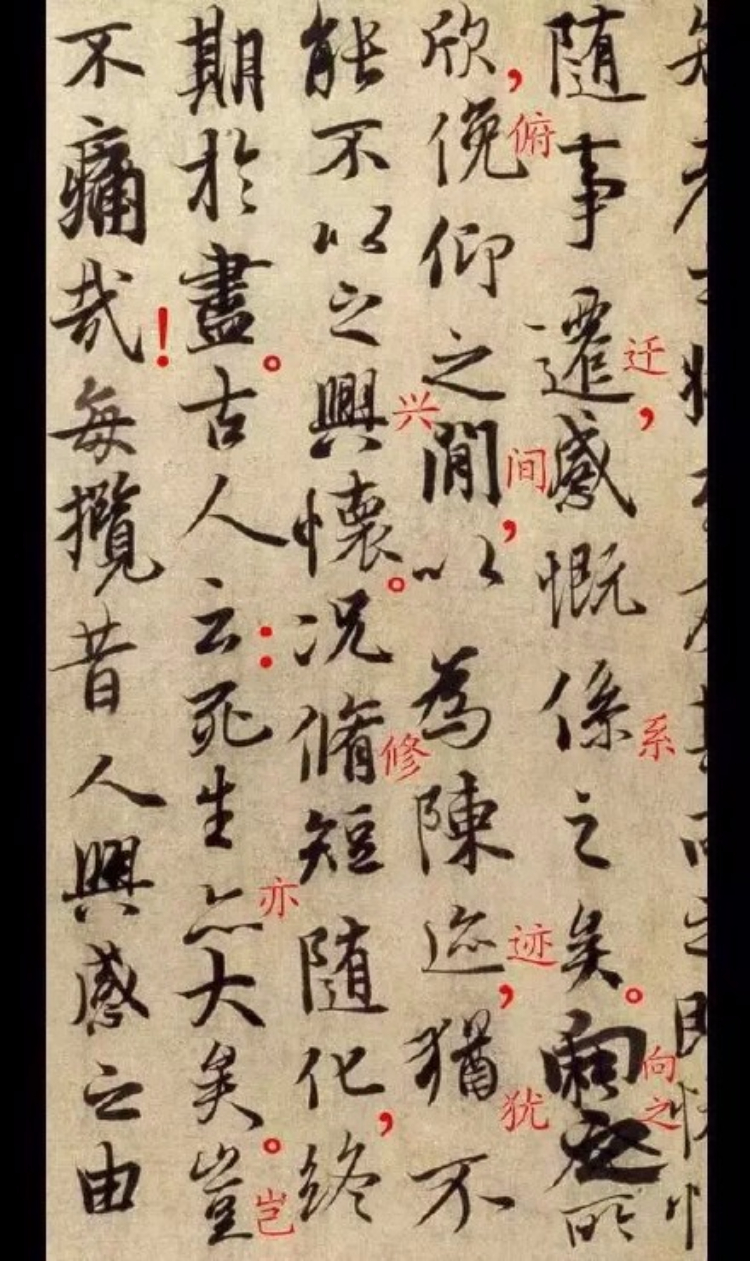 隨事遷，感慨係之矣。向之所
迁
系
向之
欣，俛仰之閒，以為陳迹，猶不
俯
间
迹
犹
能不以之興懷。况脩短隨化，終
兴
修
期於盡。古人云：死生亦大矣。豈
亦
岂
不痛哉！每攬昔人興感之由